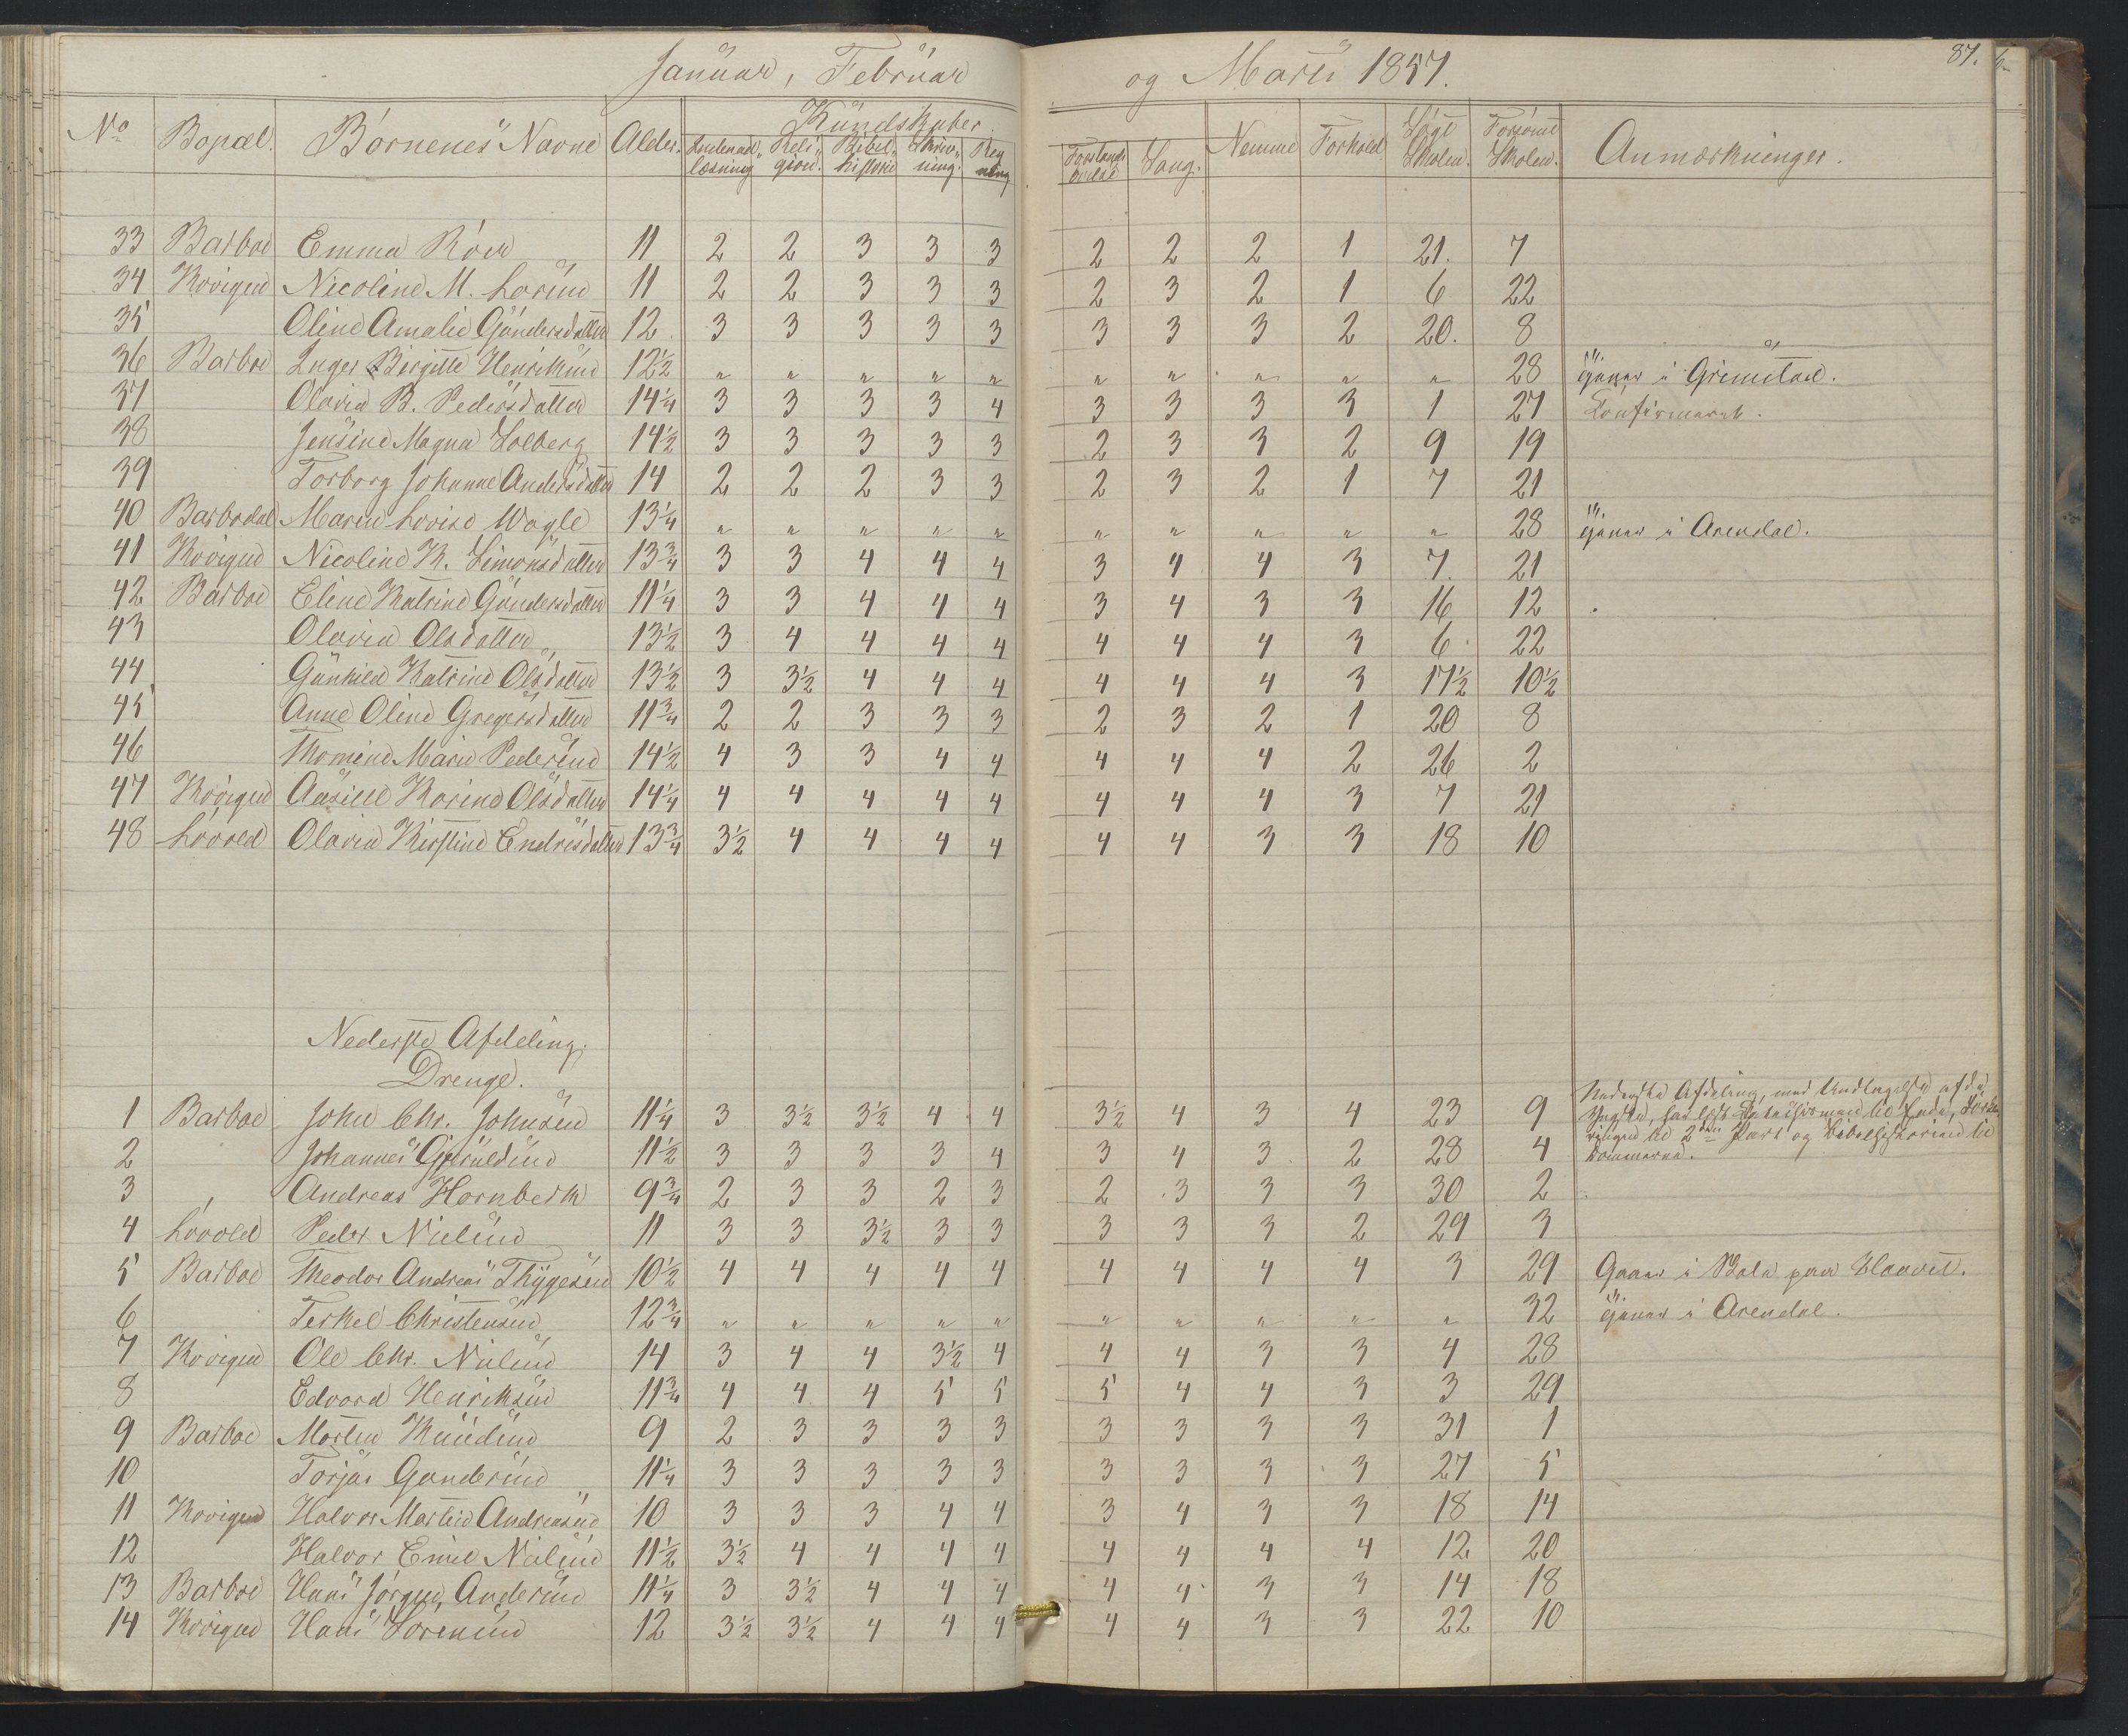 Januar, Februar og Marts 1857. 87.
No Bopæl. Børnenes Navne Alder. Kundskaber Nemme Forhold Søgt Skolen. Forsømt Skolen. Anmærkninger.
Indenadlæsning Religion. Bibelhistorie Skrivning. Regning Forstandsøvelse Sang.
33 Barboe Emma 11 2 2 3 3 3 2 2 2 1 21. 7
34 Kovigen Nicoline M. 11 2 2 3 3 3 2 3 2 1 6 22
35 Oline Amalie Gundersdatter 12 3 3 3 3 3 3 3 3 2 20. 8
36 Barboe Inger Birgitte Henriksen 12½ " " " " " " " " " " 28 Gaaer i Grimstad.
37 Olavia B. Pedersdatter 14¼ 3 3 3 3 4 3 3 3 3 1 27 Confirmeret.
38 Jensine Magna Solberg 14½ 3 3 3 3 3 2 3 3 2 9 19
39 Torborg Johanne Andersdatter 14 2 2 2 3 3 2 3 2 1 7 21
40 Barbodal Maren Lovise Wagle 13¼ " " " " " " " " " " 28 Gaaer i Arendal.
41 Kovigen Nicoline K. Simonsdatter 13¾ 3 3 4 4 4 3 4 4 3 7. 21
42 Barboe Eline Katrine Gundersdatter 11¼ 3 3 4 4 4 3 4 3 3 16 12
43 Olavia Olsdatter 13½ 3 4 4 4 4 4 4 4 3 6 22
44 Gunhild Katrine Olsdatter 13½ 3 3½ 4 4 4 4 4 4 3 17½ 10½
45 Anne Oline Gregersdatter 11¾ 2 2 3 3 3 2 3 2 1 20 8
46 Thomine Marie Pedersen 14½ 4 3 3 4 4 4 4 4 2 26 2
47 Kovigen Aasille Karine Olsdatter 14¼ 4 4 4 4 4 4 4 4 3 7 21
48 Løvold Olavia Kirstine Endresdatter 13¾ 3½ 4 4 4 4 4 4 3 3 18 10
Nederste Afdeling.
Drenge.
1 Barboe John Chr. Johnsen 11¼ 3 3½ 3½ 4 4 3½ 4 3 4 23 9 Nederste Afdeling, med Undtagelse af de
Yngste, har læst Katechismen til Ende, Forklaringen til 2den Part og Bibelhistorien til
2 Johannes Gjeruldsen 11½ 3 3 3 3 4 3 4 3 2 28 4 Dommerne.
3 Andreas Hornbeck 9¾ 2 3 3 2 3 2 3 3 3 30 2
4 Løvold Peder Nielsen 11 3 3 3½ 3 3 3 3 3 2 29 3
5 Barboe Theodor Andreas Thygesen 10½ 4 4 4 4 4 4 4 4 4 3 29 Gaaer i Skole paa
6 Terkel Christensen 12¾ " " " " " " " " " " 32 Gaaer i Arendal.
7 Kovigen Ole Chr. Nielsen 14 3 4 4 3½ 4 4 4 3 3 4 28
8 Edvard Henriksen 11¾ 4 4 4 5 5 5 4 4 3 3 29
9 Barboe Morten Knudsen 9 2 3 3 3 3 3 3 3 3 31 1
10 Torjus Gundersen 11¼ 3 3 3 3 3 3 3 3 3 27 5
11 Kovigen Halvor Martin Andreasen 10 3 3 3 4 4 3 4 3 3 18 14
12 Halvor Emil Nielsen 11½ 3½ 4 4 4 4 4 4 4 4 12 20
13 Barboe Hans Jørgen Andersen 11¼ 3 3½ 4 4 4 4 4 3 3 14 18
14 Kovigen Hans Sørensen 12 3½ 3½ 4 4 4 4 4 3 3 22 10